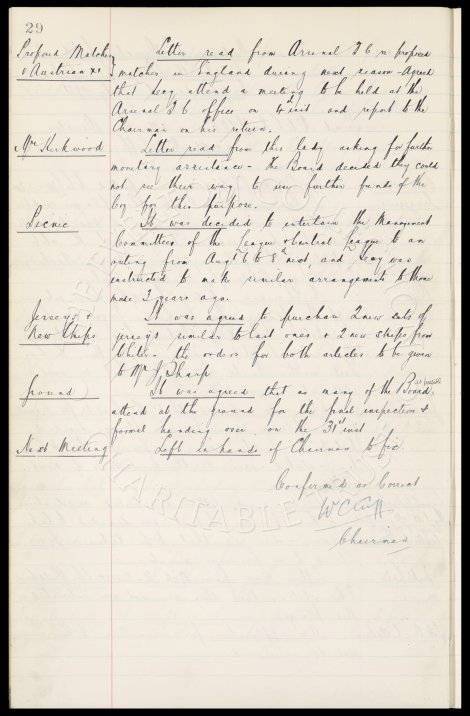 29
Proposed Matches
v Austrian XI
Letter read from Arsenal F C re proposed
matches in England during next season - Agreed
that Secy attend a meeting to be held at the
Arsenal F C office on 4th inst and report to the
Chairman on his return.
Mrs Kirkwood
Letter read from this lady asking for further
monetary assistance - the Board decided they could
not see their way to use further funds of the
Coy for this purpose.
Picnic
It was decided to entertain the Management
Committees of the League & Central League to an
outing from Augt 6 to 8th next, and Secy was
instructed to make similar arrangements to those
made 3 years ago.
Jerseys &
New Strips
It was agreed to purchase 2 new sets of
jerseys similar to last ones & 2 new strips from
- the orders for both articles to be given
to Mr J Sharp
Ground
It was agreed that as many of the Board as possible
attend at the ground for the final inspection &
formal handing over on the 31st inst
Next Meeting
Left in hands of Chairman to fix
Confirmed as Correct
W C Cuff
Chairman
CHARITABLE